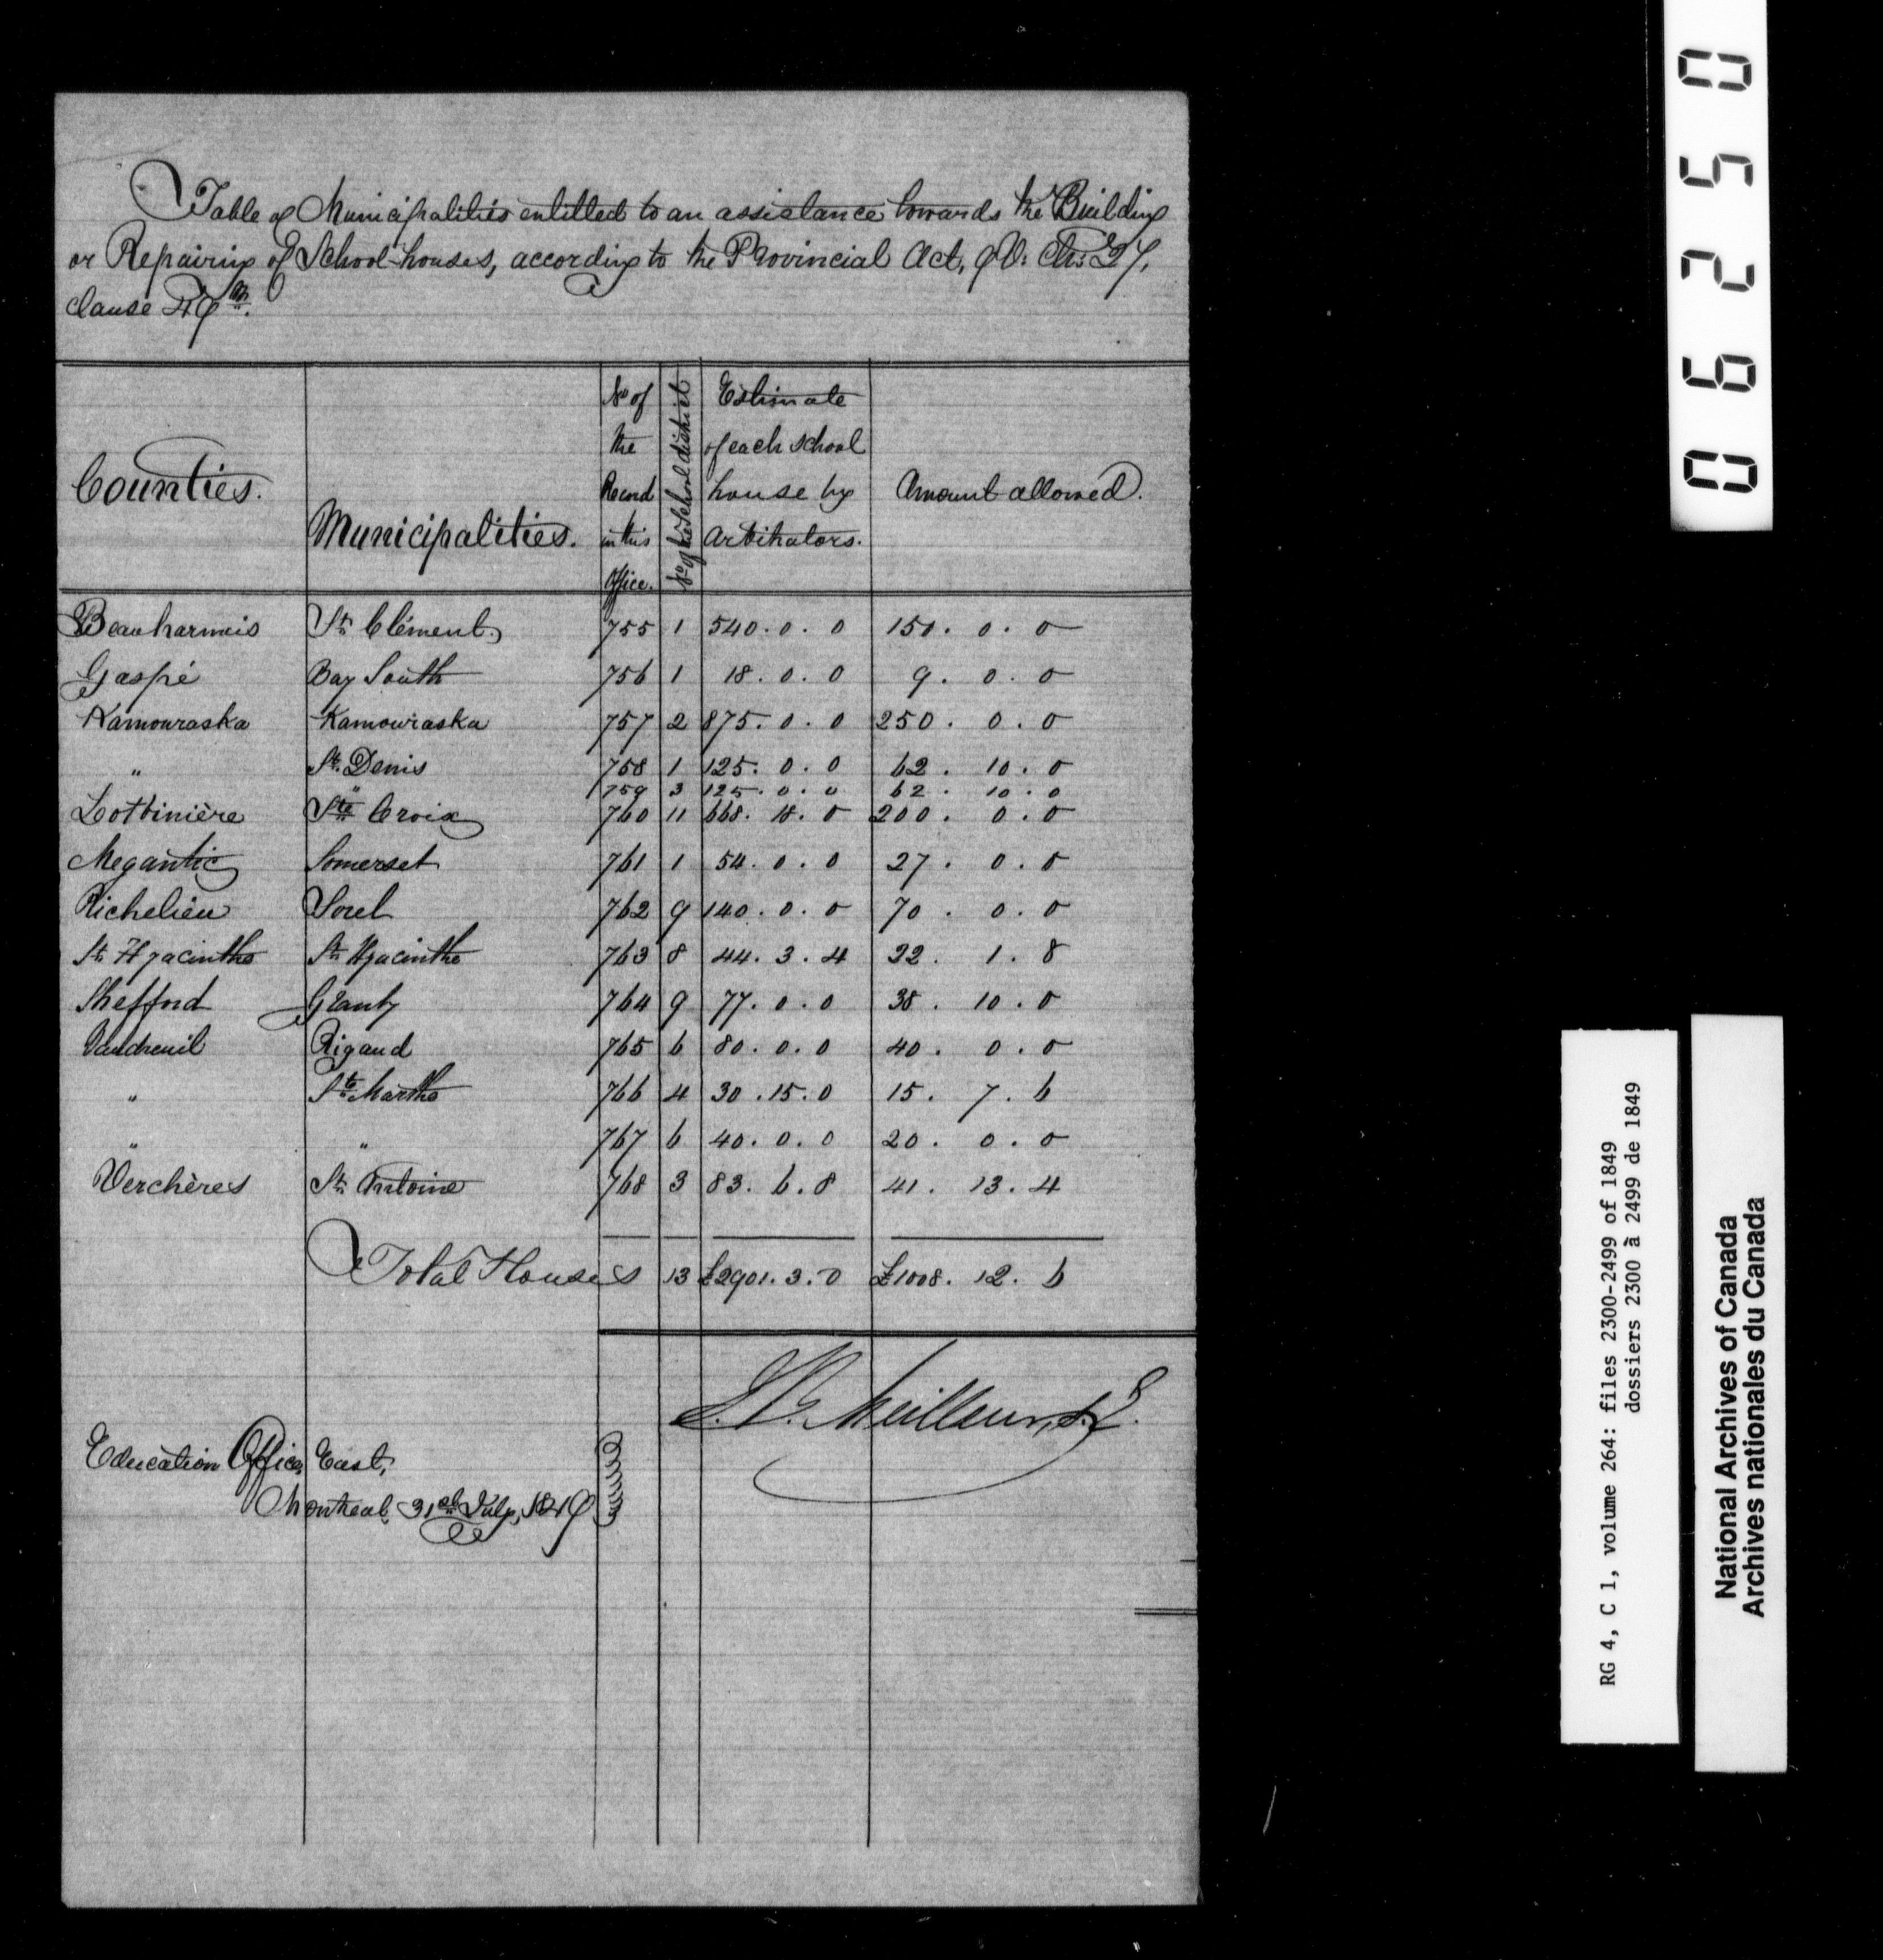 Table of Municipalities entitled to an assistance towards the Building
or Repairing of School-houses, according to the Provincial Act, 9 V: Ch: 27,
clause 49th.
Counties.
Municipalities.
No of the Record in this Office.
No of the School district
Estimate of each school house by Arbitrators.
Amount allowed.
Beauharnois St. Clément 755 1 540. 0. 0 150. 0. 0
Gaspé Bay South 756 1 18. 0. 0 9. 0. 0
Kamouraska Kamouraska 757 2 875. 0. 0 250. 0. 0
" St. Denis 758 1 125. 0. 0 62. 10. 0
" 759 3 125. 0. 0 62. 10. 0
Lotbinière Ste Croix 760 11 668. 18. 0 200. 0. 0
Megantic Somerset 761 1 54. 0. 0 27. 0. 0
Richelieu Sorel 762 9 140. 0. 0 70. 0. 0
St. Hyacinthe St. Hyacinthe 763 8 44. 3. 4 22. 1. 8
Shefford Granby 764 9 77. 0. 0 38. 10. 0
Vaudreuil Rigaud 765 6 80. 0. 0 40. 0. 0
" Ste Marthe 766 4 30. 15. 0 15. 7. 6
" " 767 6 40. 0. 0 20. 0. 0
Verchères St. Antoine 768 3 83. 6. 8 41. 13. 4
Total Houses 13 £2901. 3. 0 £1008. 12. 6
J. B. Meilleur, S. E.
Education Office, East,
Montreal, 31st July, 1849
06250
RG 4, C 1, volume 264: files 2300-2499 of 1849
dossiers 2300 à 2499 de 1849
National Archives of Canada
Archives nationales du Canada